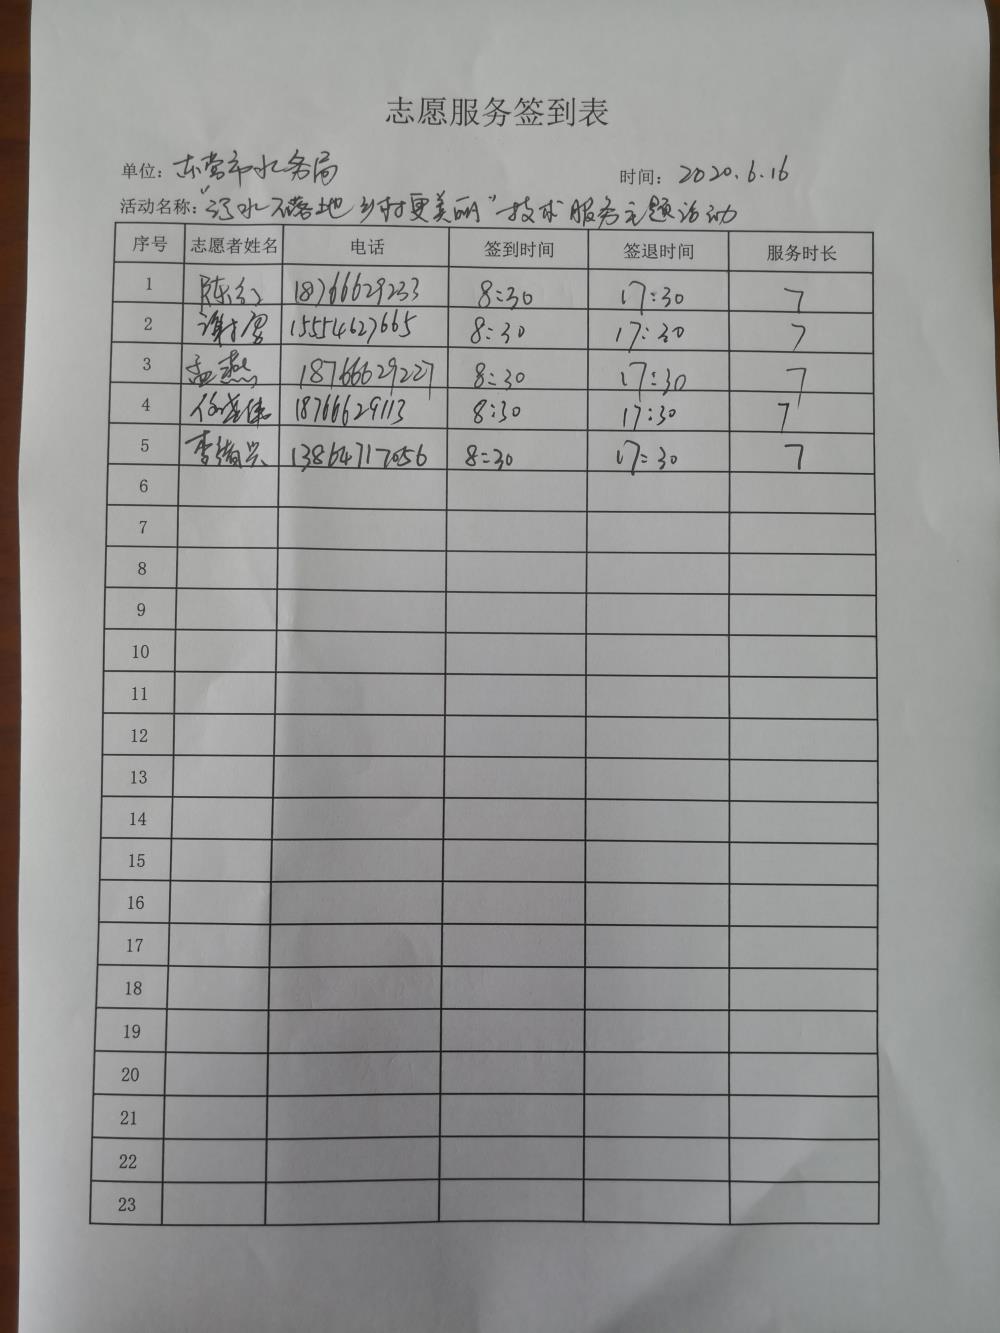 志愿服务签到表
单位：东营市水务局 时间：2020.6.16
活动名称："污水不落地 乡村更美丽"技术服务主题活动
序号 志愿者姓名 电话 签到时间 签退时间 服务时长
1 陈 18766629233 8:30 17:30 7
2 谢 15554627665 8:30 17:30 7
3 孟燕 18766629227 8:30 17:30 7
4 18766629113 8:30 17:30 7
5 李 兴 13864717056 8:30 17:30 7
6
7
8
9
10
11
12
13
14
15
16
17
18
19
20
21
22
23